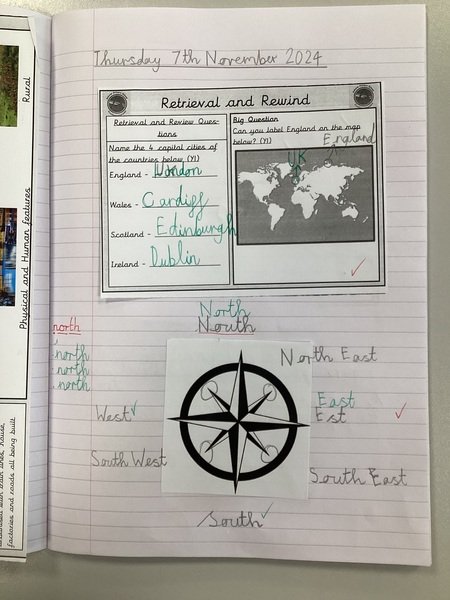 Thursday 7th November 2024
Retrieval and Rewind
Retrieval and Review Ques-
tions
Name the 4 capital cities of
the countries below (Y1)
England - London
Wales - Cardiff
Scotland - Edinburgh
Ireland - Dublin
Big Question
Can you label England on the map
below? (Y1)
England
UK
North
South
North East
East
Est
South East
South
South West
West
north
north
north
north
Rural
Physical and Human features
factories and roads all being built